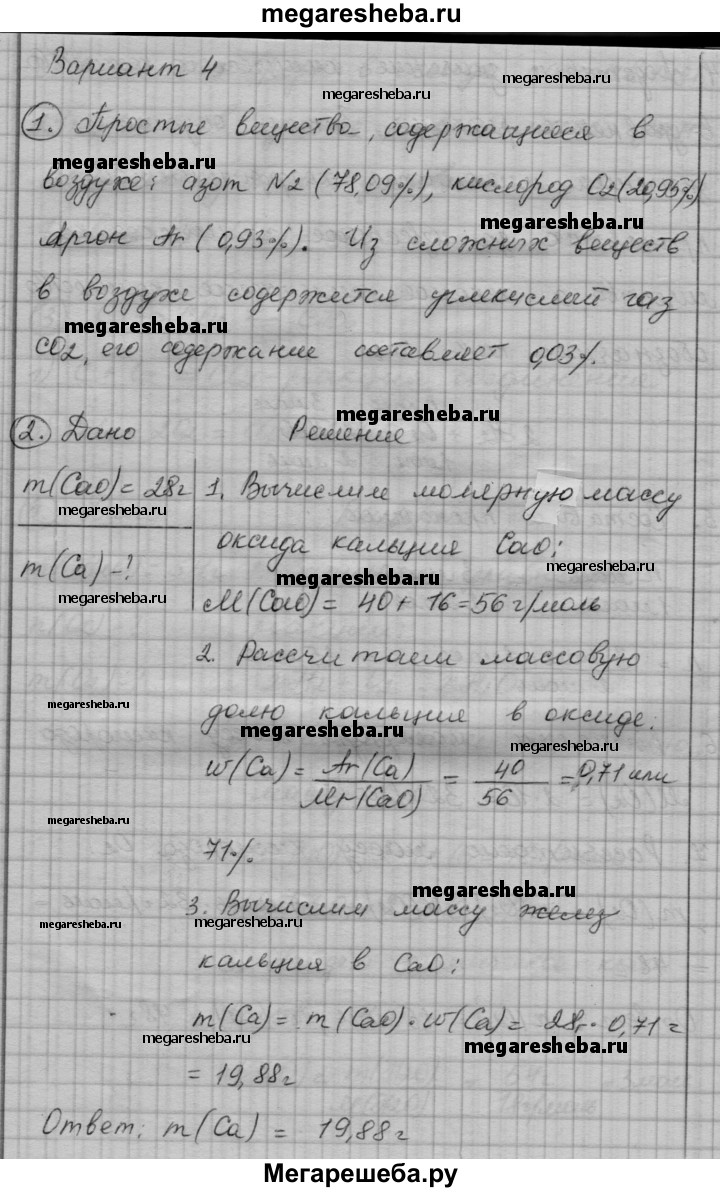 megaresheba.ru
Вариант 4
megaresheba.ru
1. Простые вещества, содержащиеся в
megaresheba.ru
воздухе: азот N2 (78,09%), кислород O2 (20,95%)
megaresheba.ru
Аргон Ar (0,93%). Из сложных веществ
в воздухе содержится углекислий газ
megaresheba.ru
CO2, его содержание составляет 0,03%.
megaresheba.ru
2. Дано Решение
m(CaO) = 28г 1. Вычислим молярную массу
megaresheba.ru
оксида кальция CaO:
megaresheba.ru
m(Ca) - ?
megaresheba.ru
megaresheba.ru
M(CaO) = 40 + 16 = 56 г/моль
2. Рассчитаем массовую
megaresheba.ru
долю кальция в оксиде:
megaresheba.ru
megaresheba.ru
w(Ca) = Ar(Ca) / Mr(CaO) = 40 / 56 = 0,71 или
megaresheba.ru
71%.
megaresheba.ru
3. Вычислим массу желез
megaresheba.ru
megaresheba.ru
кальция в CaO:
m(Ca) = m(CaO) · w(Ca) = 28г · 0,71 =
megaresheba.ru
megaresheba.ru
= 19,88г
Ответ: m(Ca) = 19,88г
Мегарешеба.ру